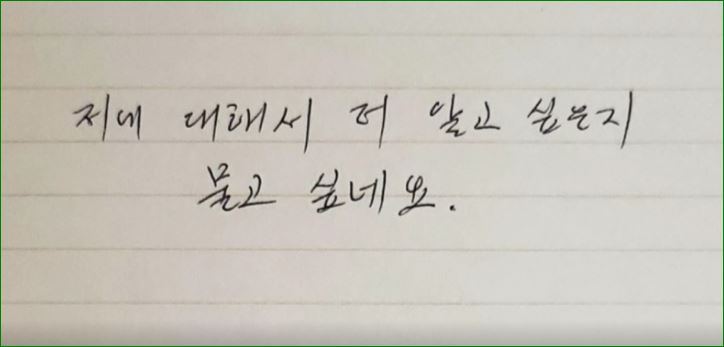 저에 대해서 더 알고 싶은지
묻고 싶네요.